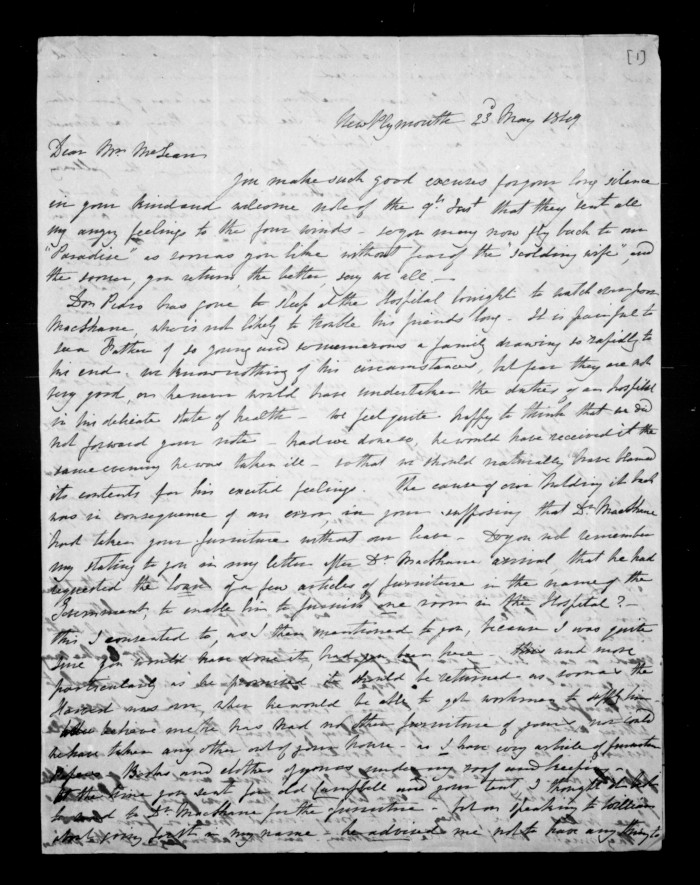 [1]
New Plymouth 23d May 1849
Dear Mr. McLean
You make such good excuses for your long silence
in your kind and welcome note of the 9th Inst that they sent all
my angry feelings to the four winds - so you may now fly back to our
"Paradise" as soon as you like without fear of the "scolding wife", and
the sooner, you return, the better say we all -
Don Pedro has gone to sleep at the Hospital tonight to watch over poor
MacShane, who is not likely to trouble his friends long - It is painful to
see a Father of so young and so numerous a family drawing so rapidly to
his end. We know nothing of his circumstances, but fear they are not
very good, or he never would have undertaken the duties of an Hospital
in his delicate state of health - We feel quite happy to think that we did
not forward your note - had we done so, he would have received it the
same evening he was taken ill - so that we should naturally have blamed
its contents for his excited feelings. The cause of our holding it back
was in consequence of an error in your supposing that Dr. MacShane
had taken your furniture without our leave - Do you not remember
my stating to you in my letter after Dr. MacShane arrival that he had
requested the loan of a few articles of furniture in the name of the
Government, to enable him to furnish one room in the Hospital? -
this I consented to, as I then mentioned to you, because I was quite
sure you would have done it, had you been here - this and more
particularly as he promised it should be returned as soon as the
was in, when he would be able to get workmen to
believe me he has had no other furniture of yours nor could
he have taken any other out of your house - as I have every article of furniture
Books and clothes of yours under my roof and keeping
At the time you sent for old Campbell and your tent, I thought it best
to send to Dr. MacShane for the furniture - but on speaking to William
about going for it in my name - he advised me not to have anything to